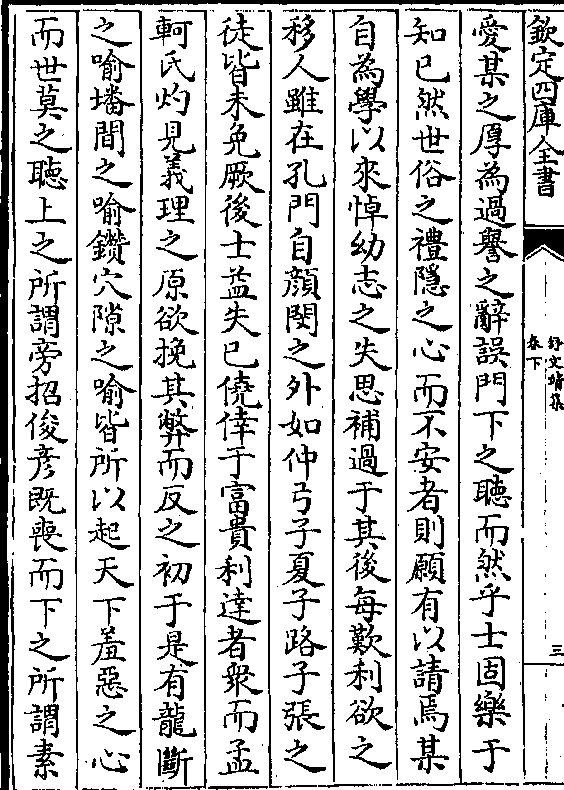 欽定四庫全書
舒文靖集
卷下
三
愛某之厚為過譽之辭誤門下之聽而然乎士固樂于
知已然世俗之禮隱之心而不安者則願有以請焉某
自為學以來悼幼志之失思補過于其後每歎利欲之
移人雖在孔門自顔閔之外如仲弓子夏子路子張之
徒皆未免厥後士益失已僥倖于富貴利達者衆而孟
軻氏灼見義理之原欲挽其弊而反之初于是有龍斷
之喻墦間之喻鑽穴隙之喻皆所以起天下羞惡之心
而世莫之聽上之所謂旁招俊彦既喪而下之所謂素